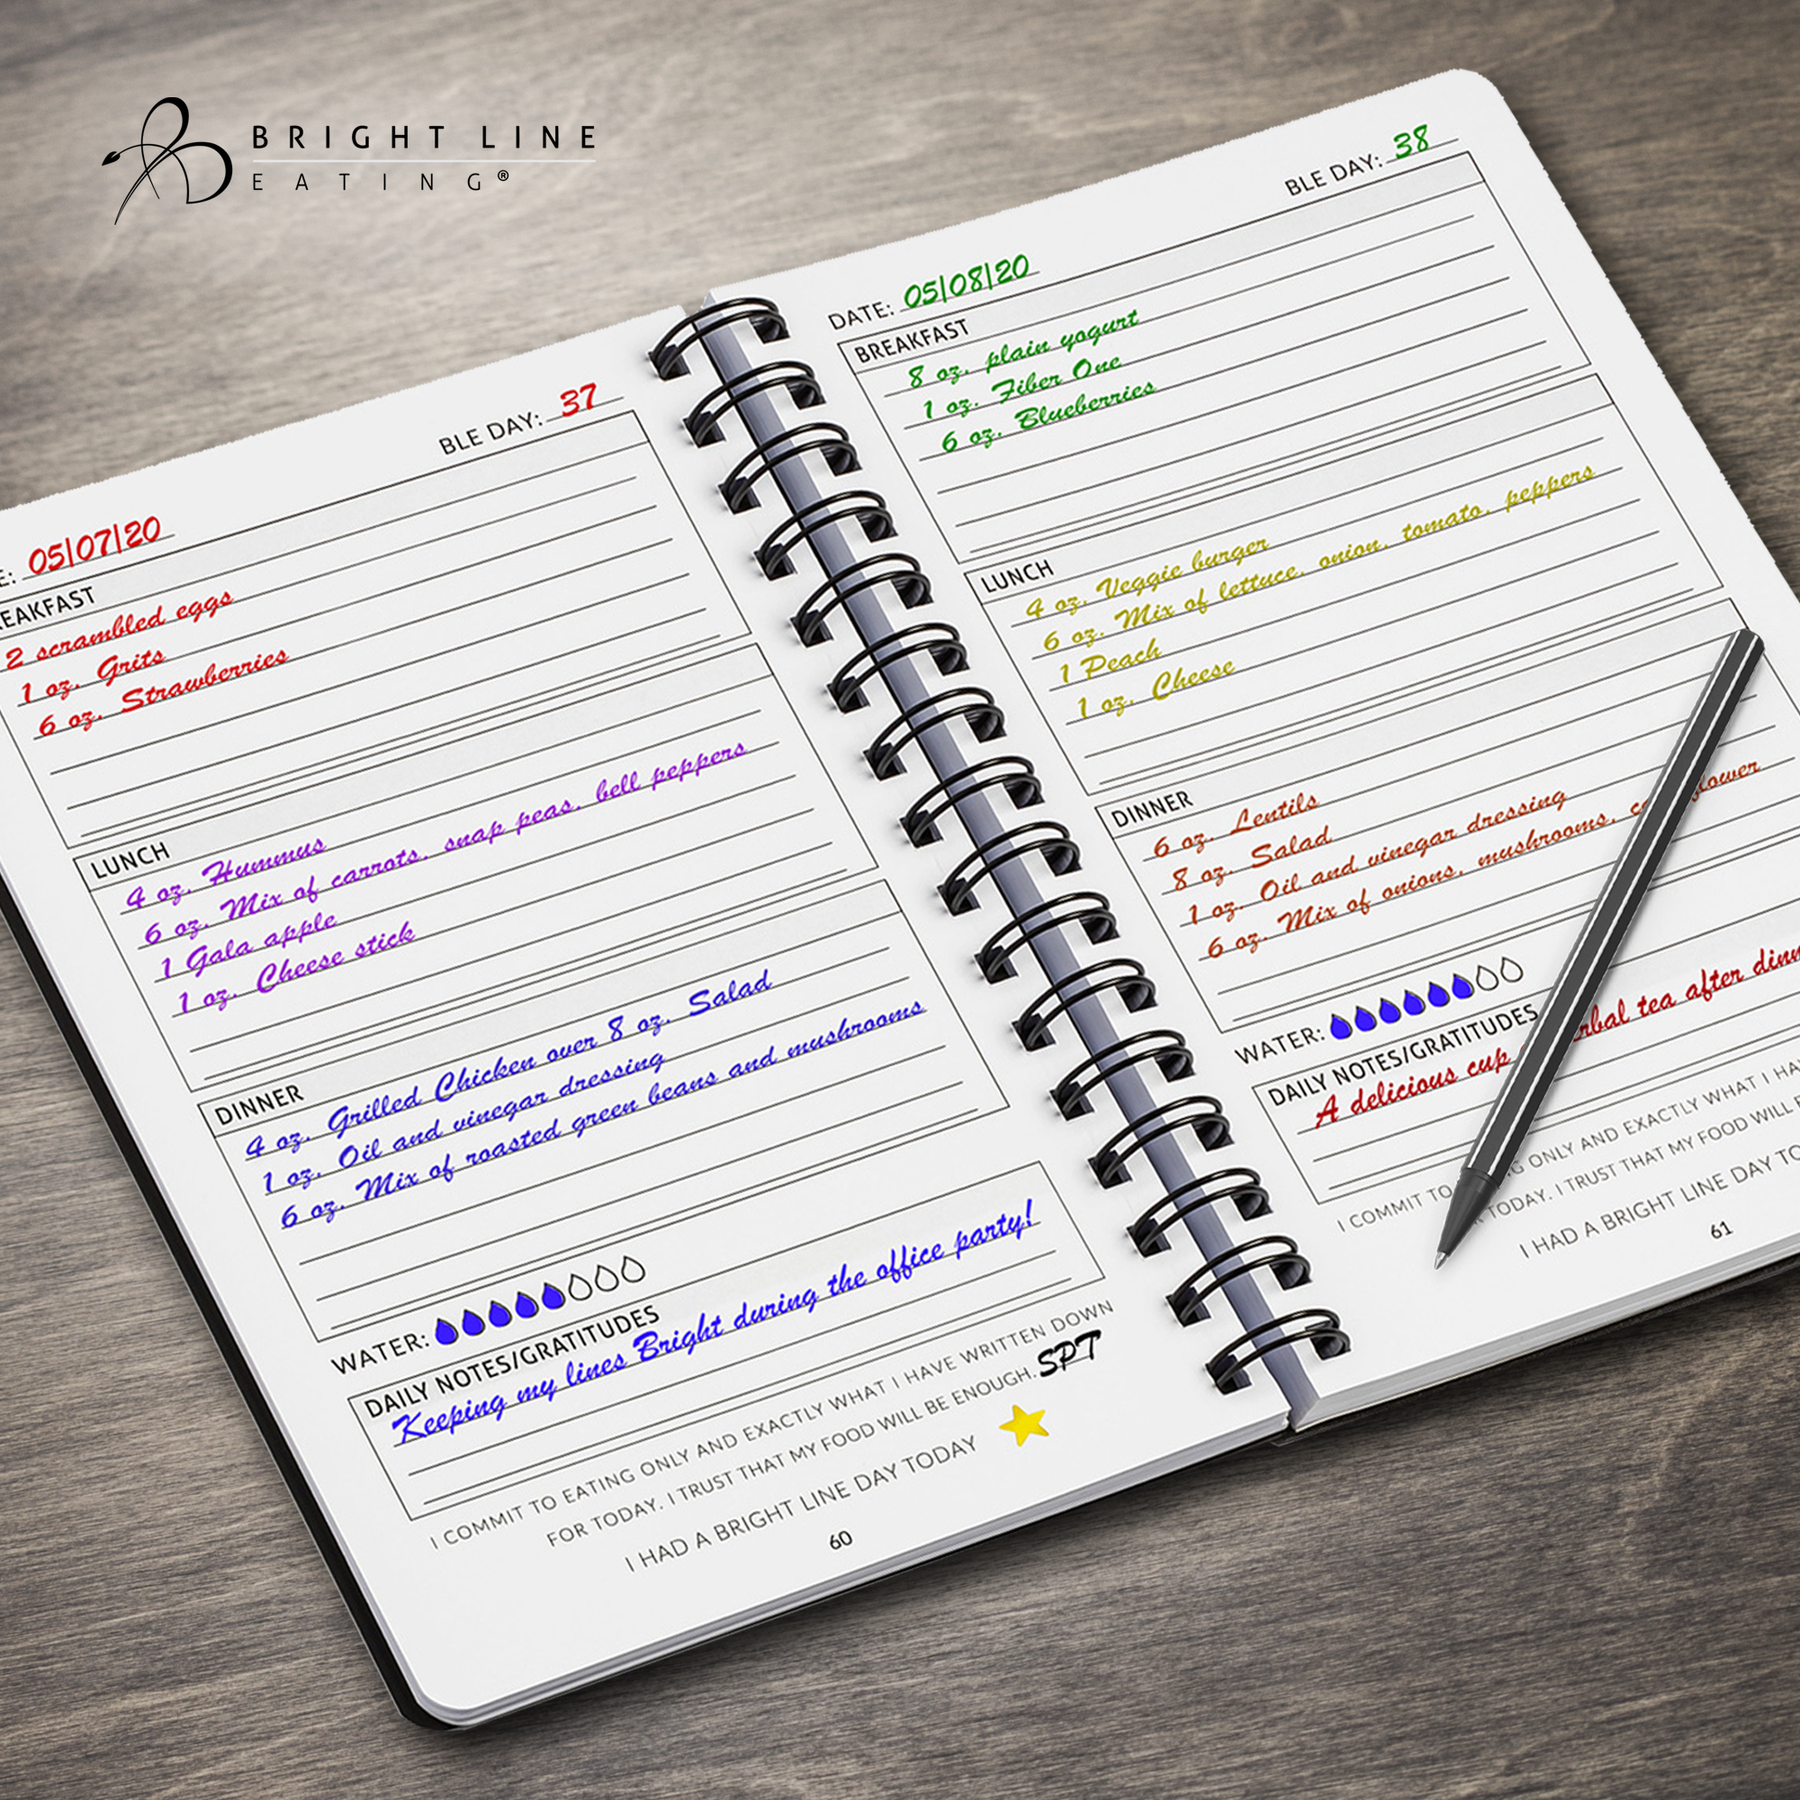 BRIGHT LINE
EATING®
BLE DAY: 37
E: 05/07/20
EAKFAST
2 scrambled eggs
1 oz. Grits
6 oz. Strawberries
LUNCH
4 oz. Hummus
6 oz. Mix of carrots, snap peas, bell peppers
1 Gala apple
1 oz. Cheese stick
DINNER
4 oz. Grilled Chicken over 8 oz. Salad
1 oz. Oil and vinegar dressing
6 oz. Mix of roasted green beans and mushrooms
WATER:
DAILY NOTES/GRATITUDES
Keeping my lines Bright during the office party!
I COMMIT TO EATING ONLY AND EXACTLY WHAT I HAVE WRITTEN DOWN
FOR TODAY. I TRUST THAT MY FOOD WILL BE ENOUGH. SPT
I HAD A BRIGHT LINE DAY TODAY
60
BLE DAY: 38
DATE: 05/08/20
BREAKFAST
8 oz. plain yogurt
1 oz. Fiber One
6 oz. Blueberries
LUNCH
4 oz. Veggie burger
6 oz. Mix of lettuce, onion, tomato, peppers
1 Peach
1 oz. Cheese
DINNER
6 oz. Lentils
8 oz. Salad
1 oz. Oil and vinegar dressing
6 oz. Mix of onions, mushrooms,
WATER:
DAILY NOTES/GRATITUDES
A delicious cup tea after
I COMMIT TO ONLY AND EXACTLY WHAT I
TODAY. I TRUST THAT MY FOOD WILL
I HAD A BRIGHT LINE DAY
61